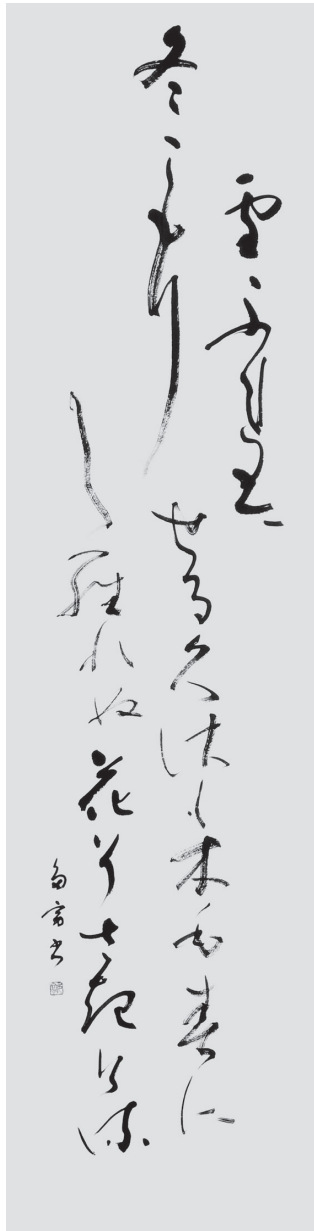 雪ふれば
冬こもり
せる久佐も木も春に
し羅れぬ花曽さ起ける
書